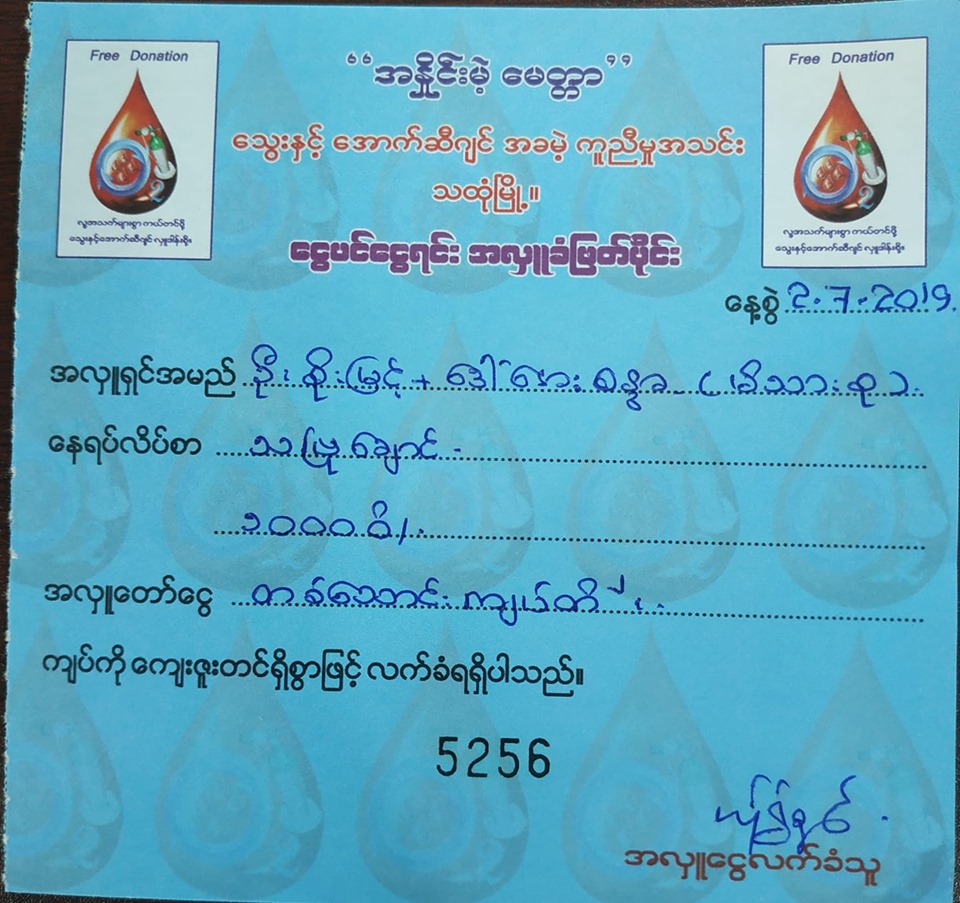 Free Donation
လူ့အသက်များစွာ ကယ်တင်ဖို့
သွေးနှင့်အောက်ဆီဂျင် လှူဒါန်းစို့။
“အနှိုင်းမဲ့ မေတ္တာ”
သွေးနှင့် အောက်ဆီဂျင် အခမဲ့ ကူညီမှုအသင်း
သထုံမြို့။
ငွေပဒေသာငွေရင်း အလှူခံဖြတ်ပိုင်း
Free Donation
လူ့အသက်များစွာ ကယ်တင်ဖို့
သွေးနှင့်အောက်ဆီဂျင် လှူဒါန်းစို့။
နေ့စွဲ 2.7.2019.
အလှူရှင်အမည် ဦးစိုးမြင့် + ဒေါ်အေး (မိသားစု)
နေရပ်လိပ်စာ သဖြုချောင်
၁၀၀၀၀ိ/.
အလှူတော်ငွေ တစ်သောင်းကျပ်တိ
ကျပ်ကို ကျေးဇူးတင်ရှိစွာဖြင့် လက်ခံရရှိပါသည်။
5256
အလှူငွေလက်ခံသူ